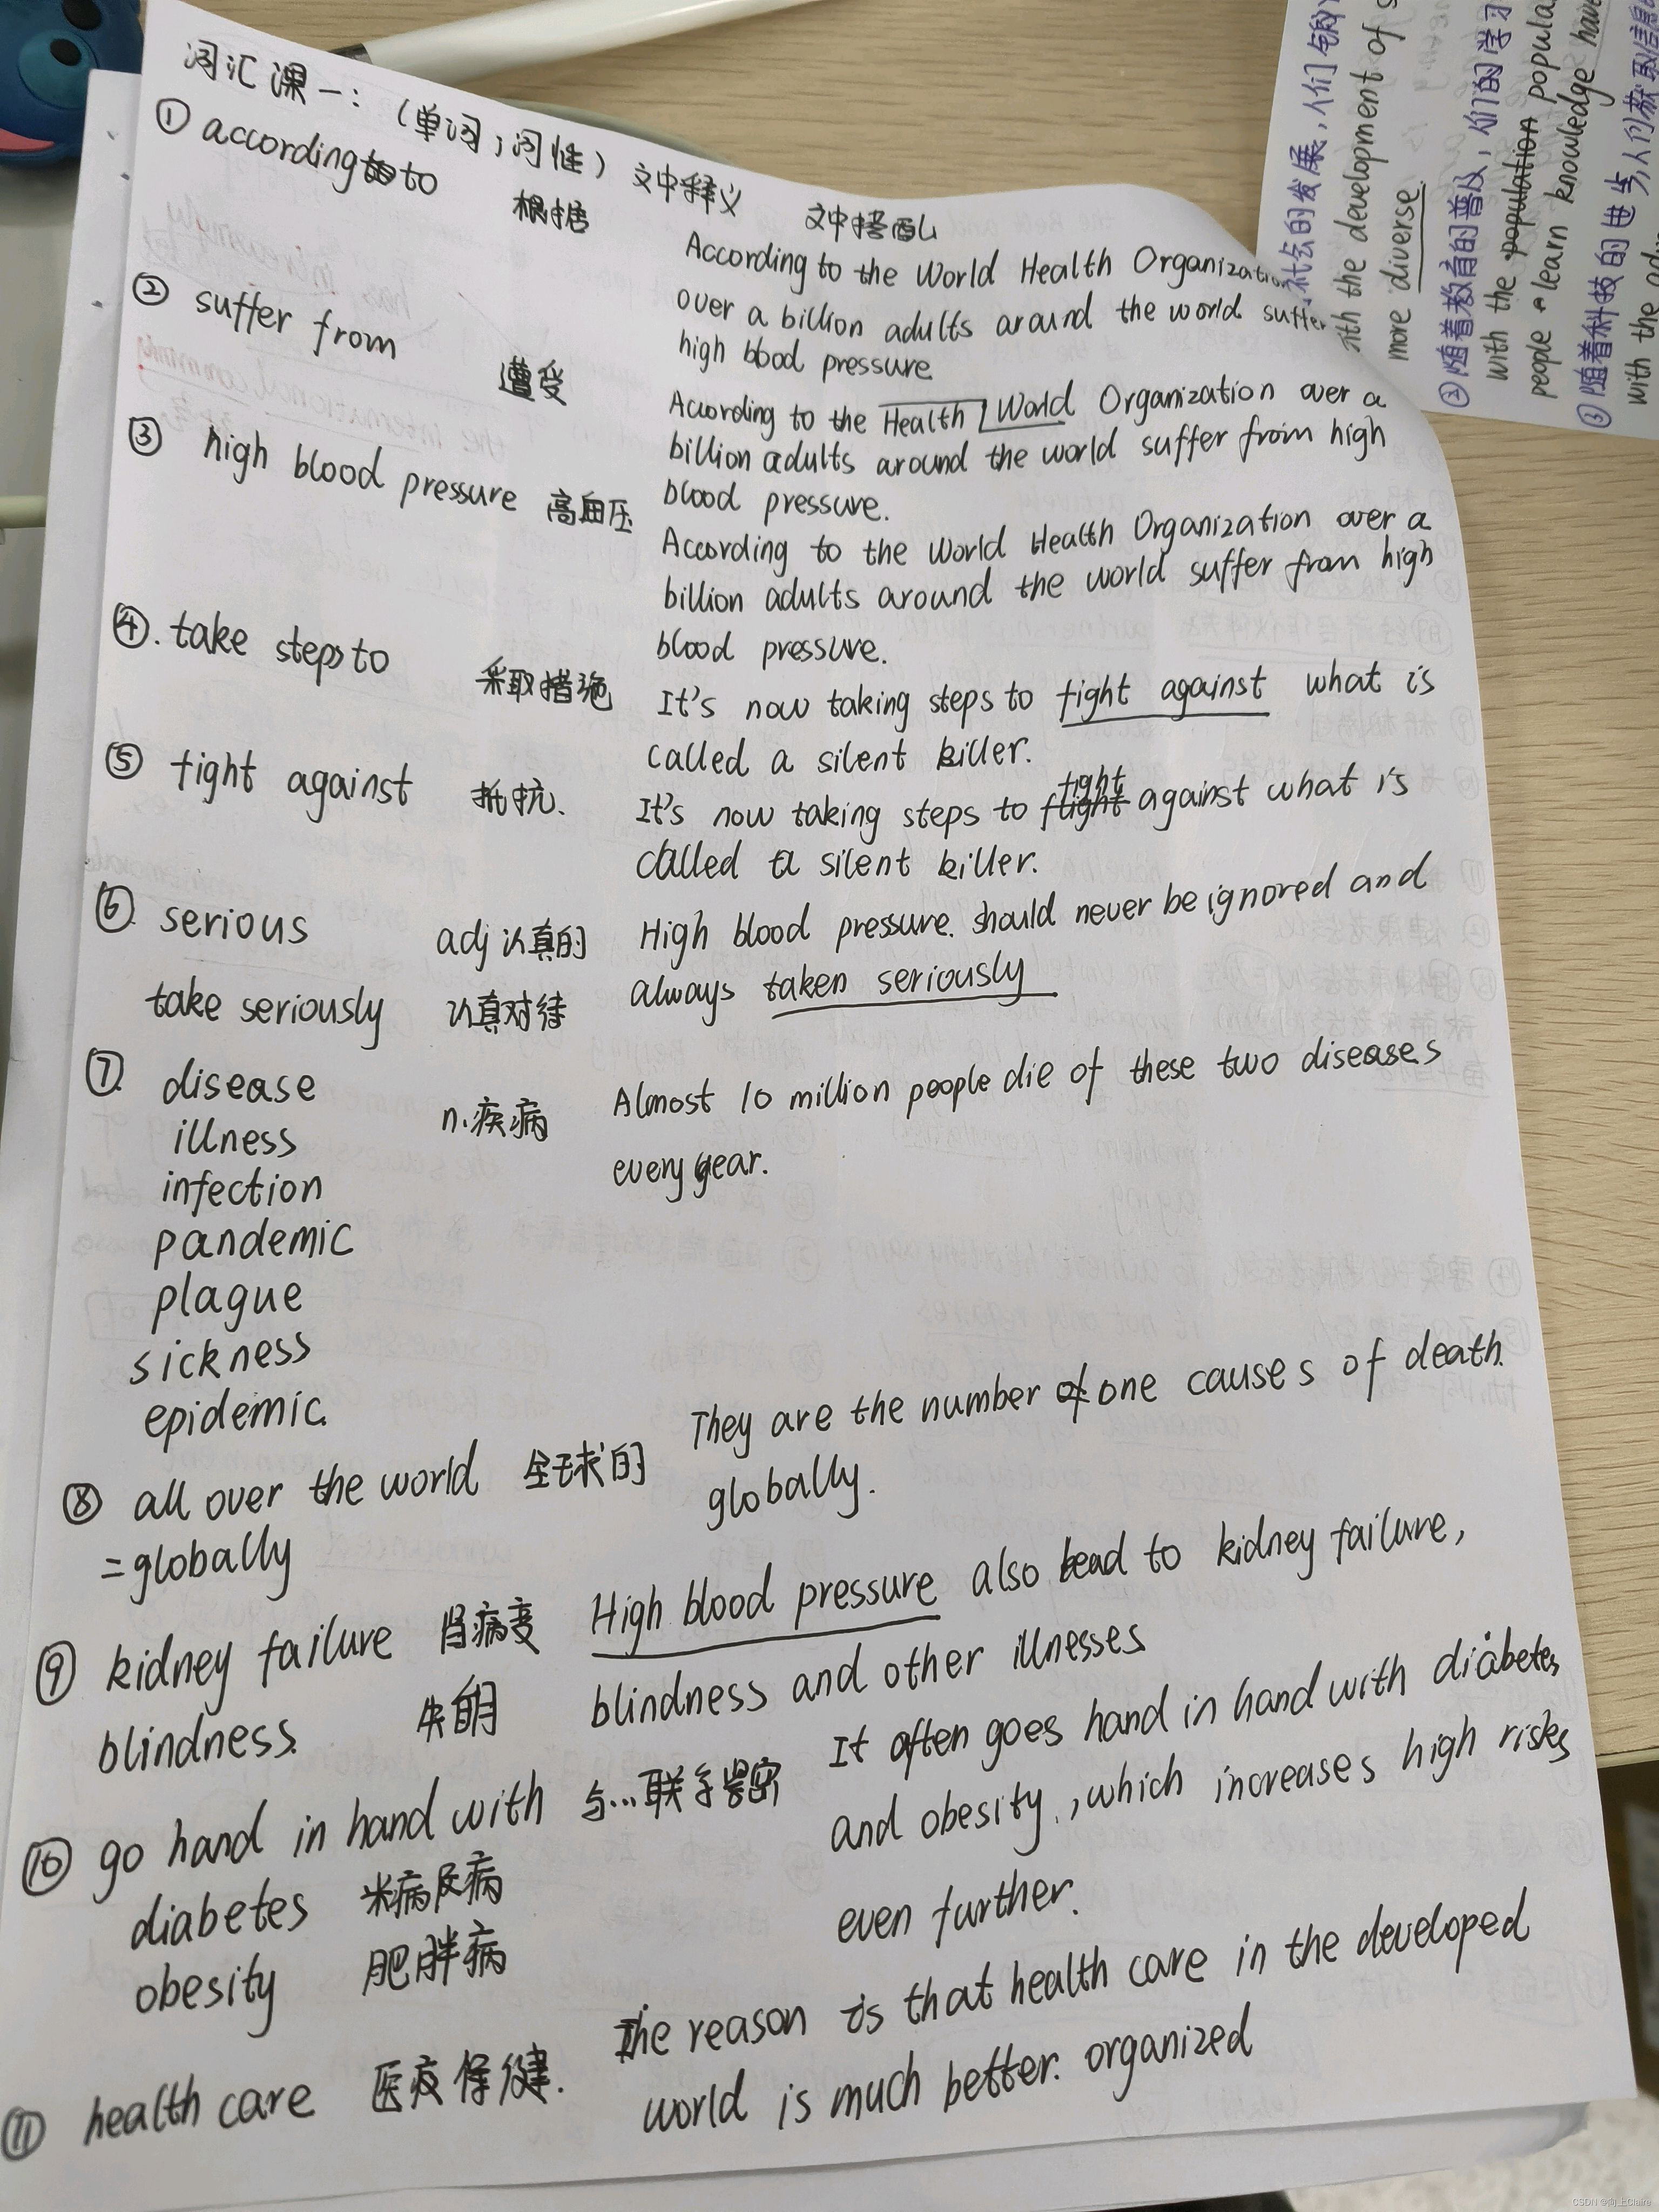 词汇课一：（单词，词性）文中释义 文中搭配
① according to 根据
According to the World Health
over a billion adults around the world suffer
high blood pressure
② suffer from 遭受
According to the Health World Organization over a
billion adults around the world suffer from high
blood pressure.
③ high blood pressure 高血压
According to the World Health Organization over a
billion adults around the world suffer from high
blood pressure.
④. take steps to 采取措施
It's now taking steps to fight against what is
called a silent killer.
⑤ fight against 抵抗.
It's now taking steps to fight against what is
called a silent killer.
⑥. serious adj 认真的
take seriously 认真对待
High blood pressure. should never be ignored and
always taken seriously
⑦. disease n.疾病
illness
infection
pandemic
plague
sickness
epidemic.
Almost 10 million people die of these two diseases
every year.
⑧ all over the world 全球的
=globally
They are the number one causes of death.
globally.
⑨ kidney failure 肾病变
blindness. 失明
High blood pressure also lead to kidney failure,
blindness and other illnesses
⑩ go hand in hand with 与...联系紧密
diabetes
obesity 肥胖病
It often goes hand in hand with diabetes
and obesity., which increases high risks
even further.
⑪ health care 医疗保健.
The reason is that health care in the developed
world is much better. organized
社会的发展，人们
with the development of s
more diverse.
②随着教育的普及，人们的学习
with the population popula
people learn knowledge have
③随着科技的进步，人们获取信息
with the adv
CSDN @向上Claire